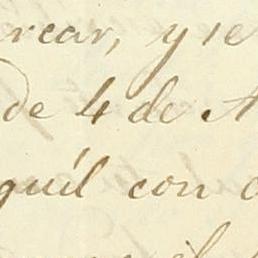 rcar, y se
de 4 de A
quíl con